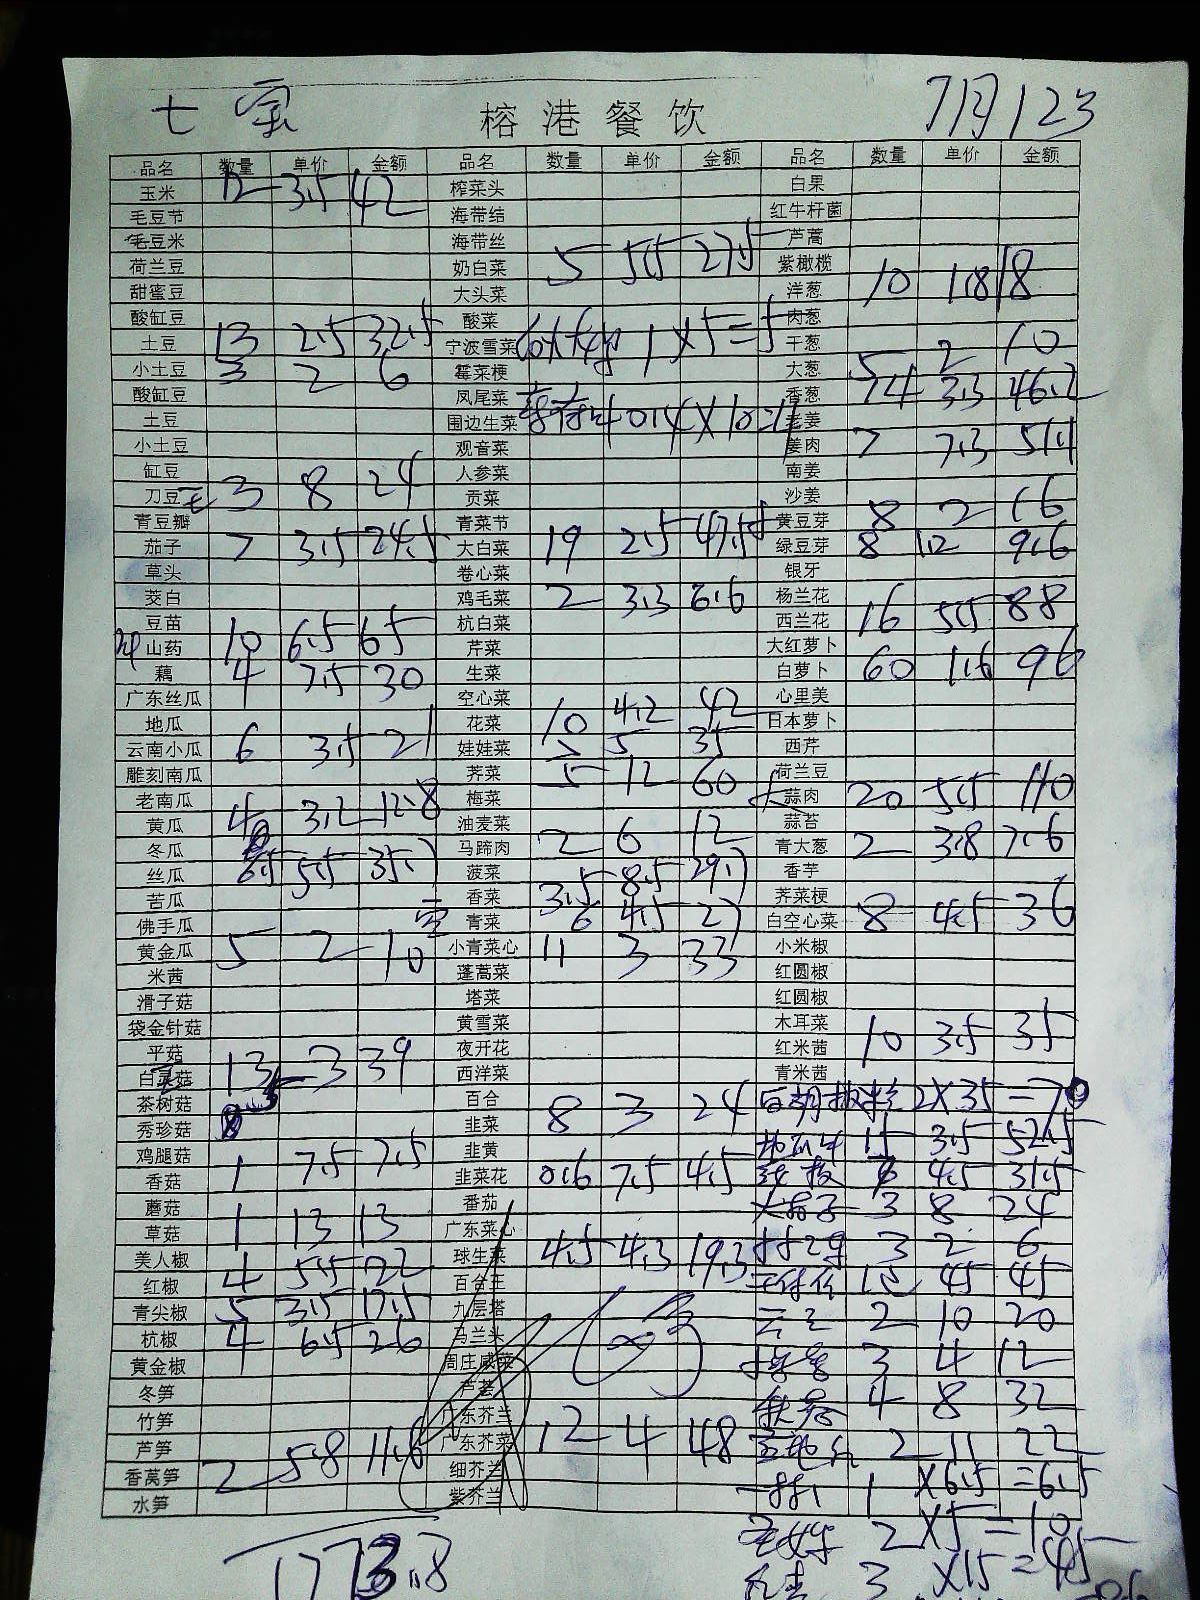 七宝 榕港餐饮 7月123
品名 数量 单价 金额 品名 数量 单价 金额 品名 数量 单价 金额
玉米 12 3.5 42 榨菜头 白果
毛豆节 海带结 红牛杆菌
毛豆米 海带丝 芦蒿
荷兰豆 奶白菜 5 5.5 27.5 紫橄榄
甜蜜豆 大头菜 洋葱 10 1.8 18
酸缸豆 酸菜 肉葱
土豆 13 2.5 32.5 宁波雪菜 1×5=5 干葱
小土豆 3 2 6 霉菜梗 大葱 5 2 10
酸缸豆 凤尾菜 香葱 14 3.3 46.2
土豆 围边生菜 老姜
小土豆 观音菜 姜肉 7 7.3 51.1
缸豆 人参菜 南姜
刀豆 3 8 24 贡菜 沙姜
青豆瓣 青菜节 黄豆芽 8 2 16
茄子 7 3.5 24.5 大白菜 19 2.5 47.5 绿豆芽 8 1.2 9.6
草头 卷心菜 银牙
茭白 鸡毛菜 2 3.3 6.6 杨兰花
豆苗 杭白菜 西兰花 16 5.5 88
山药 10 6.5 65 芹菜 大红萝卜
藕 4 7.5 30 生菜 白萝卜 60 1.6 96
广东丝瓜 空心菜 心里美
地瓜 花菜 10 4.2 42 日本萝卜
云南小瓜 6 3.5 21 娃娃菜 7 5 35 西芹
雕刻南瓜 荠菜 5 12 60 荷兰豆
老南瓜 梅菜 大蒜肉 20 5.5 110
黄瓜 4 3.2 12.8 油麦菜 蒜苔
冬瓜 马蹄肉 2 6 12 青大葱 2 3.8 7.6
丝瓜 6.5 5.5 35.7 菠菜 香芋
苦瓜 香菜 3.5 8.5 29.7 荠菜梗
佛手瓜 青菜 6 4.5 27 白空心菜 8 4.5 36
黄金瓜 5 2 10 小青菜心 11 3 33 小米椒
米茜 蓬蒿菜 红圆椒
滑子菇 塔菜 红圆椒
袋金针菇 黄雪菜 木耳菜
平菇 夜开花 红米茜 10 3.5 35
白灵菇 13 3 39 西洋菜 青米茜
茶树菇 百合 白胡椒粉 2×35=70
秀珍菇 韭菜 8 3 24 15 3.5 52.5
鸡腿菇 韭黄 7 4.5 31.5
香菇 1 7.5 7.5 韭菜花 0.6 7.5 4.5
蘑菇 番茄 3 8 24
草菇 1 13 13 广东菜心 3 2 6
美人椒 球生菜 4.5 4.3 19.3
红椒 4 5.5 22 百合王 45 45
青尖椒 5 3.5 17.5 九层塔 2 10 20
杭椒 4 6.5 26 马兰头
黄金椒 周庄咸菜 3 4 12
冬笋 芦荟 4 8 32
竹笋 广东芥兰
芦笋 广东芥菜 12 4 48 2 11 22
香莴笋 2 5.8 11.6 细芥兰 1 ×6.5=6.5
水笋 紫芥兰
2×5=10
1773.8 3 ×15=45